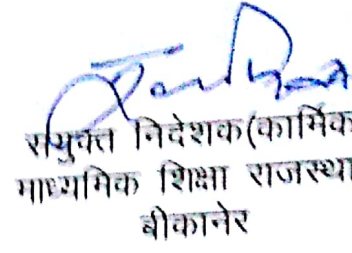 संयुक्त निदेशक(कार्मिक
माध्यमिक शिक्षा राजस्था
बीकानेर